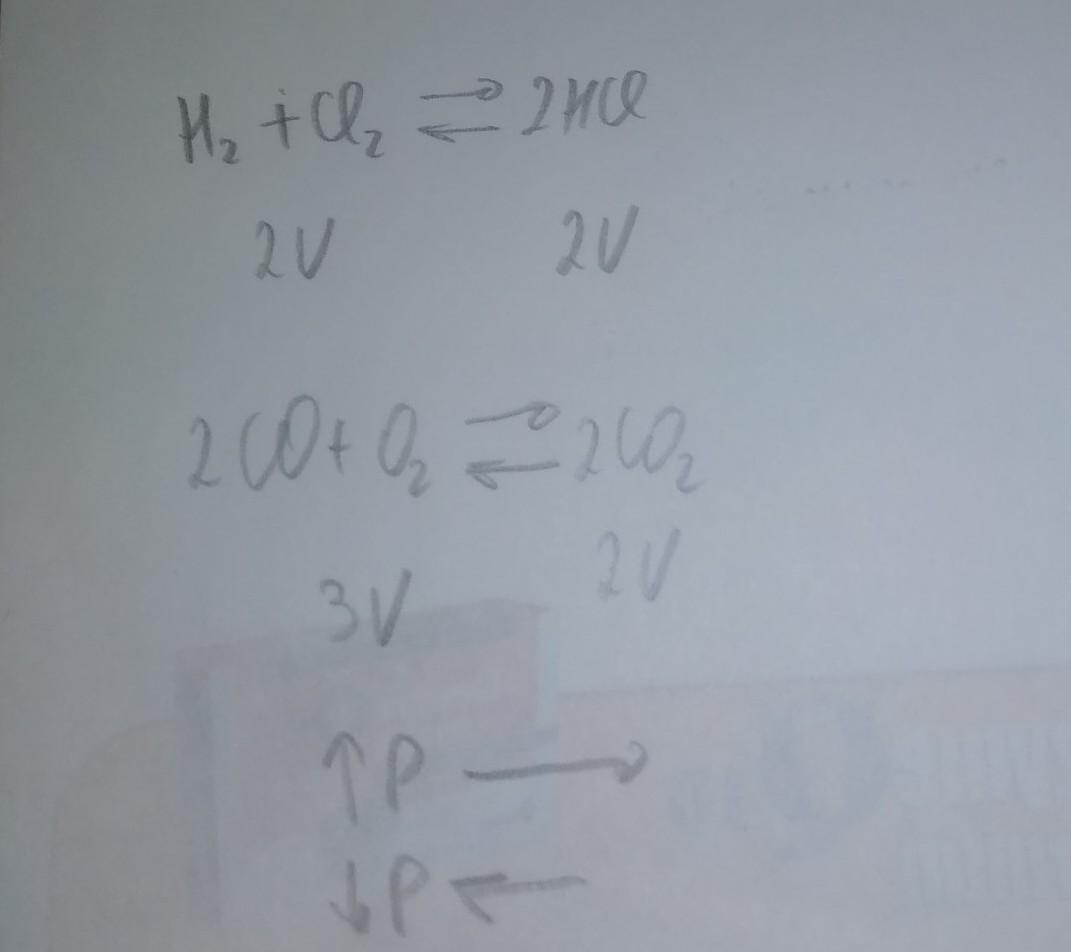 H₂ + Cl₂ ⇄ 2HCl
2V 2V
2CO + O₂ ⇄ 2CO₂
3V 2V
↑ P →
↓ P ←